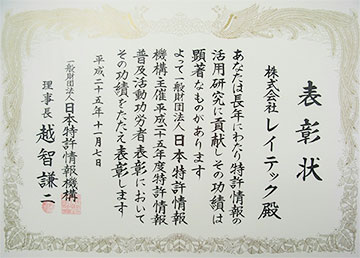 表彰状
株式会社レイテック殿
あなたは長年にわたり特許情報の
活用研究に貢献しその功績は
顕著なものがあります
よって一般財団法人日本特許情報
機構主催平成二十五年度特許情報
普及活動功労者表彰において
その功績をたたえ表彰します
平成二十五年十一月七日
一般財団法人日本特許情報機構
理事長 越智謙二